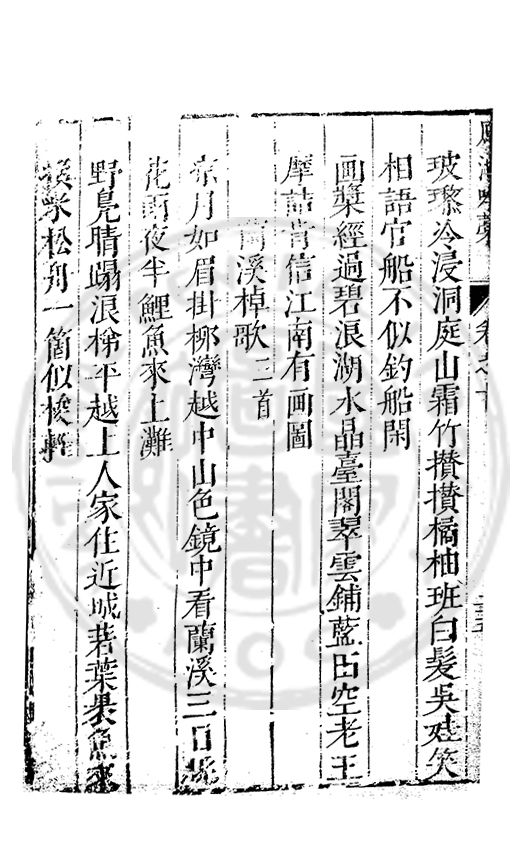 鳳池吟稾 卷之十
玻瓈冷浸洞庭山霜竹攅攅橘柚班白髪吳娃笑
相語官船不似釣船閑
画槳經過碧浪湖水晶臺閣翠雲鋪藍田空老王
摩詰肯信江南有画圖
蘭溪棹歌三首
凉月如眉掛柳灣越中山色鏡中看蘭溪三日桃
花雨夜半鯉魚來上灘
野鳧晴蹋浪梯平越上人家住近城箬葉裹魚來
換米松舟一箇似梭輕